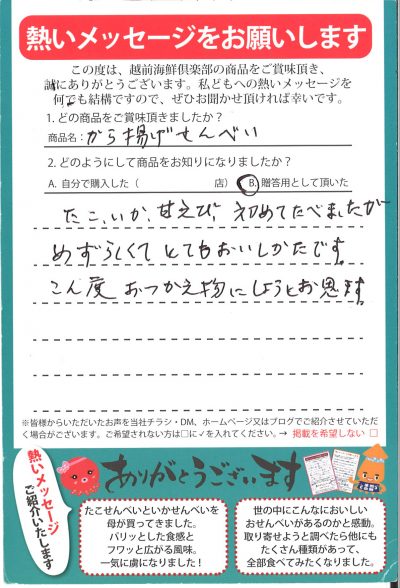 熱いメッセージをお願いします
この度は、越前海鮮倶楽部の商品をご賞味頂き、
誠にありがとうございます。私どもへの熱いメッセージを
何でも結構ですので、ぜひお聞かせ頂ければ幸いです。
1. どの商品をご賞味頂きましたか?
商品名:から揚げせんべい
2. どのようにして商品をお知りになりましたか?
A. 自分で購入した( 店) B. 贈答用として頂いた
たこ、いか、甘えび、初めてたべましたが
めずらしくてとてもおいしかたです。
こん度おつかえ物にしようとお思ます。
※皆様からいただいたお声を当社チラシ・DM、ホームページ又はブログでご紹介させていただ
く場合がございます。ご希望されない方は□に✓を入れてください。→ 掲載を希望しない □
熱いメッセージ
ご紹介いたします
ありがとうございます
たこせんべいといかせんべいを
母が買ってきました。
パリッとした食感と
フワッと広がる風味。
一気に虜になりました!
世の中にこんなにおいしい
おせんべいがあるのかと感動。
取り寄せようと調べたら他にも
たくさん種類があって、
全部食べてみたくなりました。